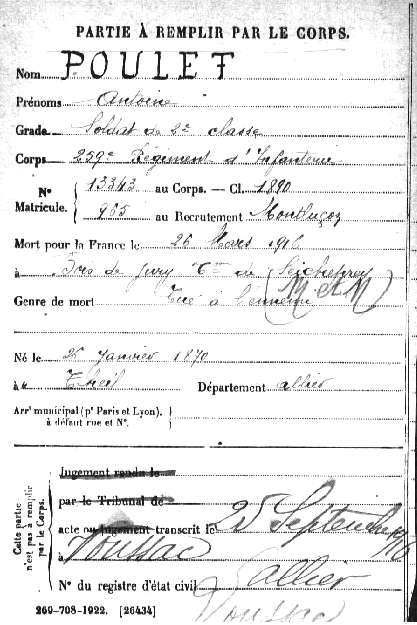 PARTIE À REMPLIR PAR LE CORPS.
Nom POULET
Prénoms Antoine
Grade Soldat de 2e classe
Corps 259e Régiment d'Infanterie
N° Matricule. 13343 au Corps. — Cl. 1890
965 au Recrutement Montluçon
Mort pour la France le 26 Mars 1916
à Bois de Jury Cne de Seicheprey
(M & M)
Genre de mort Tué à l'ennemi
Né le 25 Janvier 1870
à Theil Département Allier
Arr' municipal (p' Paris et Lyon),
à défaut rue et N°.
Cette partie n'est pas à remplir par le Corps.
Jugement rendu le
par le Tribunal de
acte ou jugement transcrit le 25 Septembre 1916
à Voussac
Allier
N° du registre d'état civil
Voussac
269-708-1922. [26434]